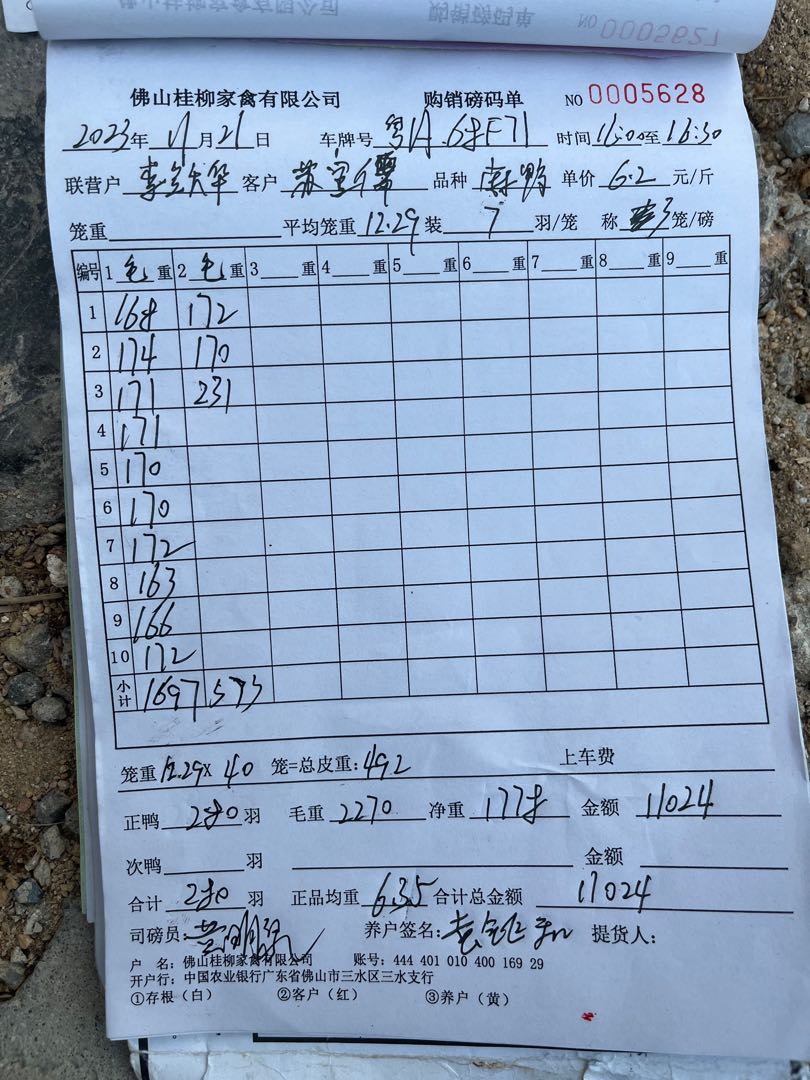 NO 0005627
佛山桂柳家禽有限公司 购销磅码单 NO 0005628
2023年 11月 21日 车牌号 粤A.68F71 时间 16:00至 16:30
联营户 客户 品种 单价 6.2 元/斤
笼重 平均笼重 12.29 装 7 羽/笼 称 笼/磅
编号 1 毛 重 2 毛 重 3 重 4 重 5 重 6 重 7 重 8 重 9 重
1 168 172
2 174 170
3 171 231
4 171
5 170
6 170
7 172
8 163
9 166
10 172
小计 1697 573
笼重 12.29 X 40 笼=总皮重: 492 上车费
正鸭 280 羽 毛重 2270 净重 1778 金额 11024
次鸭 羽 金额
合计 280 羽 正品均重 6.35 合计总金额 11024
司磅员: 养户签名: 提货人:
户 名: 佛山桂柳家禽有限公司 账号: 444 401 010 400 169 29
开户行: 中国农业银行广东省佛山市三水区三水支行
①存根(白) ②客户(红) ③养户(黄)